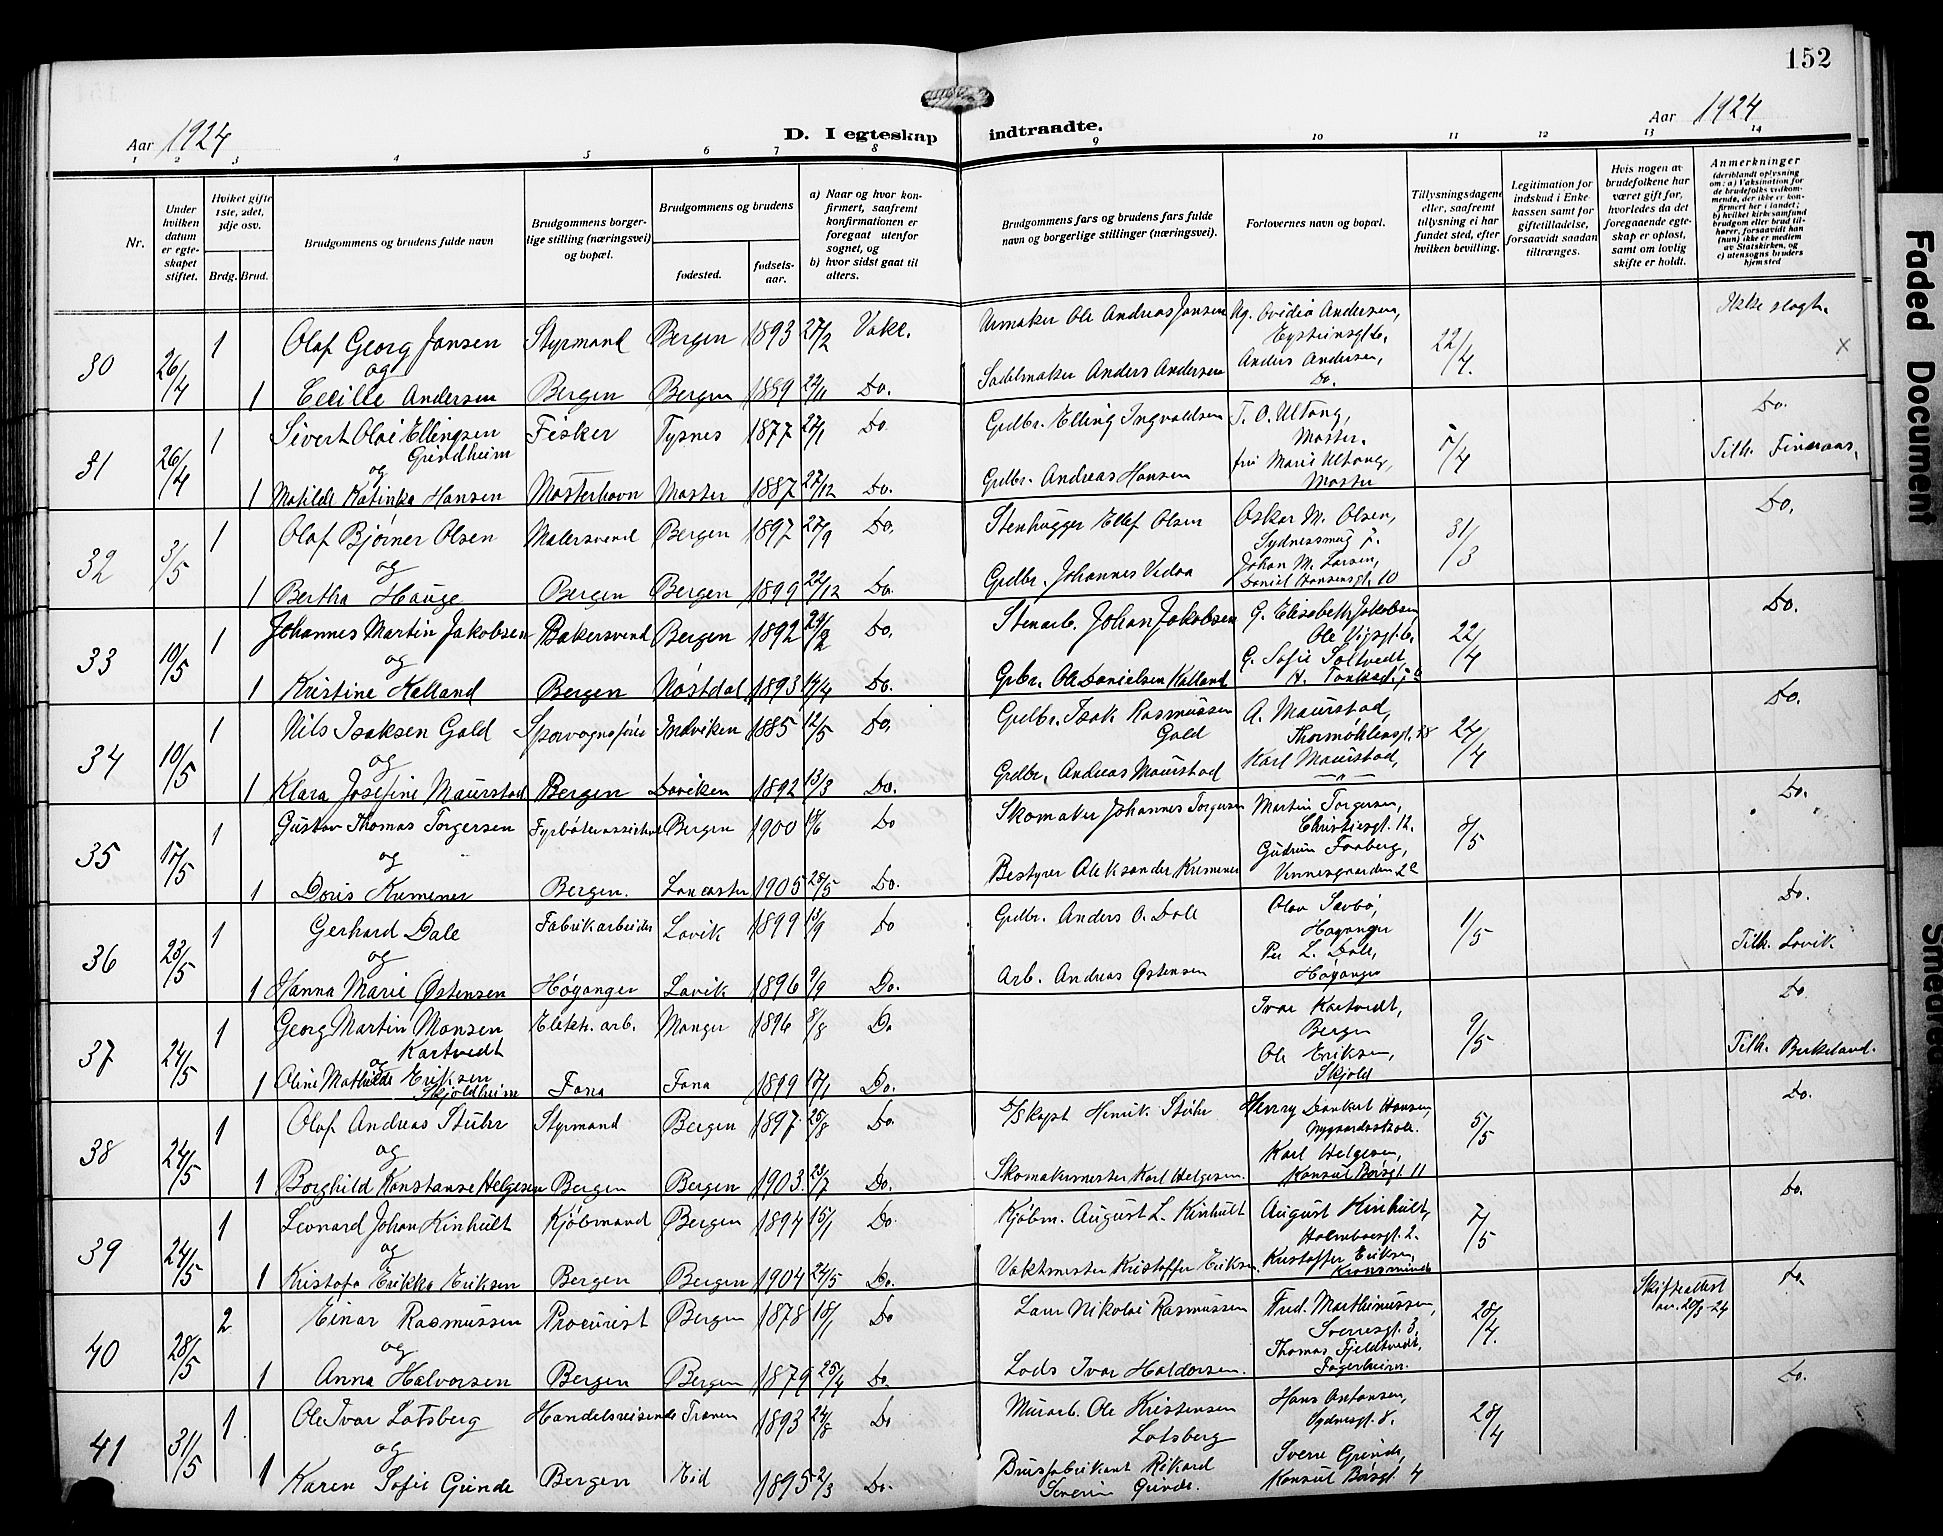 152
Aar 1924
D. I egteskap indtraadte.
Aar 1924
1 2 3 4 5 6 7 8 9 10 11 12 13 14
Nr.
Under hvilken datum er egteskapet stiftet.
Hvilket gifte 1ste, 2det, 3dje osv.
Brdg. Brud.
Brudgommens og brudens fulde navn
Brudgommens borgerlige stilling (næringsvei) og bopæl.
Brudgommens og brudens
fødested. fødselsaar.
a) Naar og hvor konfirmert, saafremt konfirmationen er foregaat utenfor sognet, og
b) hvor sidst gaat til alters.
Brudgommens fars og brudens fars fulde navn og borgerlige stillinger (næringsvei).
Forlovernes navn og bopæl.
Tillysningsdagene eller, saafremt tillysning ei har fundet sted, efter hvilken bevilling.
Legitimation for indskud i Enkekassen samt for giftetilladelse, forsaavidt saadan tiltrænges.
Hvis nogen av brudefolkene har været gift før, hvorledes da det foregaaende egteskap er opløst, samt om lovlig skifte er holdt.
Anmerkninger (deriblandt oplysning om: a) Vaksination for de brudefolks vedkommende, der ikke er konfirmert her i landet; b) hvilket kirkesamfund brudgom eller brud tilhører, forsaavidt han (hun) ikke er medlem av Statskirken, og c) utensogns bruders hjemsted
30 26/4 1 Olaf Georg Jansen Styrmand Bergen 1893 27/2 Vake. Urmaker Ole Andreas Jansen Ag. Ovidia Andersen, Eysteinsgt. 6. 22/4. Ikke slegt. x
og
1 Cecilie Andersen Bergen Bergen 1889 22/11 Do. Sadelmaker Anders Andersen Anders Andersen, Do.
31 26/4 1 Sivert Olai Ellingsen Grindheim Fisker Tysnes 1877 27/1 Do Grdbr. Elling Ingvaldsen T. O. Ultang, Moster. 5/4 Do.
og
1 Matilde Katinka Hansen Mosterhavn Moster 1887 27/12 Do. Grdbr. Andreas Hansen fru Marie Ultang, Moster Tilh. Finnaas.
32 3/5 1 Olaf Bjørner Olsen Malersvend Bergen 1897 27/9 Do. Stenhugger Ellef Olsen Oskar M. Olsen, 31/3 Do.
og
1 Bertha Hauge Bergen Bergen 1899 22/12 Do. Grdbr. Johannes Vedaa Johan M. Larsen, Daniel Hansensgt. 10
33 10/5 1 Johannes Martin Jakobsen Bakersvend Bergen 1892 Do. Stenarb. Johan Jakobsen G. Elisabeth Jakobsen Ole Vigsgt. 6. 22/4 Do.
og
1 Kristine Kalland Bergen Nøstdal 1893 14/4 Do. Grbr. Ole Danielsen Kalland G. Sofie Soltvedt,
34 10/5 1 Nils Isaksen Gald Indviken 1885 12/5 Do. Grdbr. Isak Rasmussen Gald A. Maurstad, Thormøhlensgt. 24/4 Do.
og
1 Klara Josefine Maurstad Bergen Daviken 1892 13/3 Do. Grdbr. Andreas Maurstad Karl Maurstad, — " —
35 17/5 1 Gustav Thomas Torgersen Bergen 1900 Do Skomaker Johannes Torgersen Martin Torgersen, Christiesgt. 12. 8/5 Do.
og
1 Doris Kremener Bergen. Lancaster 1905 28/5 Do. Bestyrer Aleksander Kremener
36 23/5 1 Gerhard Dale Fabrikarbeider Lavik 1899 13/9 Do Grdbr. Anders O. Dale Olav Sæbø, Høyanger 1/5 Do.
og
1 Hanna Marie Østensen Høyanger Lavik 1896 9/9 Do. Arb. Andreas Østensen Per L. Dale, Høyanger Tilh. Lavik
37 24/5 1 Georg Martin Monsen Kartvedt Elektr. arb. Manger 1896 8/8 Do Ivar Kartvedt, Bergen 9/5 Do.
og
1 Oline Mathilde Eriksen Skjoldheim Fana Fana 1899 17/1 Do. Ole Eriksen, Skjold Tilh. Birkeland.
38 24/5 1 Olaf Andreas Stuhr Styrmand Bergen 1897 25/8 Do. D/S kapt Henrik Stuhr Henry Dankert Hansen, Nygaardsskole. 5/5 Do.
og
1 Borghild Konstanse Helgesen Bergen Bergen 1903 23/7 Do. Skomakermester Karl Helgesen. Karl Helgesen, Konsul Børsgt. 11
39 24/5 1 Leonard Johan Kinhult Kjøbmand Bergen 1894 15/1 Do. Kjøbm. August L. Kinhult August Kinhult, Holmboesgt. 2. 7/5 Do.
og
1 Kristofa Erikka Eriksen Bergen Bergen 1904 24/5 Do. Vaktmester Kristoffer Eriksen. Kristoffer Eriksen,
40 28/5 2 Einar Rasmussen Procurist Bergen 1878 18/1 Do Lars Nikolai Rasmussen Fred. Marthinussen, Sverresgt. 3, 28/4. Skifteattest av. 20/3-24 Do.
og
1 Anna Halvorsen Bergen Bergen 1879 25/4 Do. Lods Ivar Haldorsen. Thomas Fjeldtvedt, Fagerheim.
41 31/5 1 Ole Ivar Lotsberg Handelsreisende 1893 24/8 Do Murarb. Ole Kristensen Lotsberg Hans Antonsen, Sydnesgt. 8. 28/4 Do.
og
1 Karen Sofie Grinde Bergen Eid 1895 2/3 Do. Brusfabrikant Rikard Severin Grinde. Sverre Grinde, Konsul Børsgt. 4
Faded Document